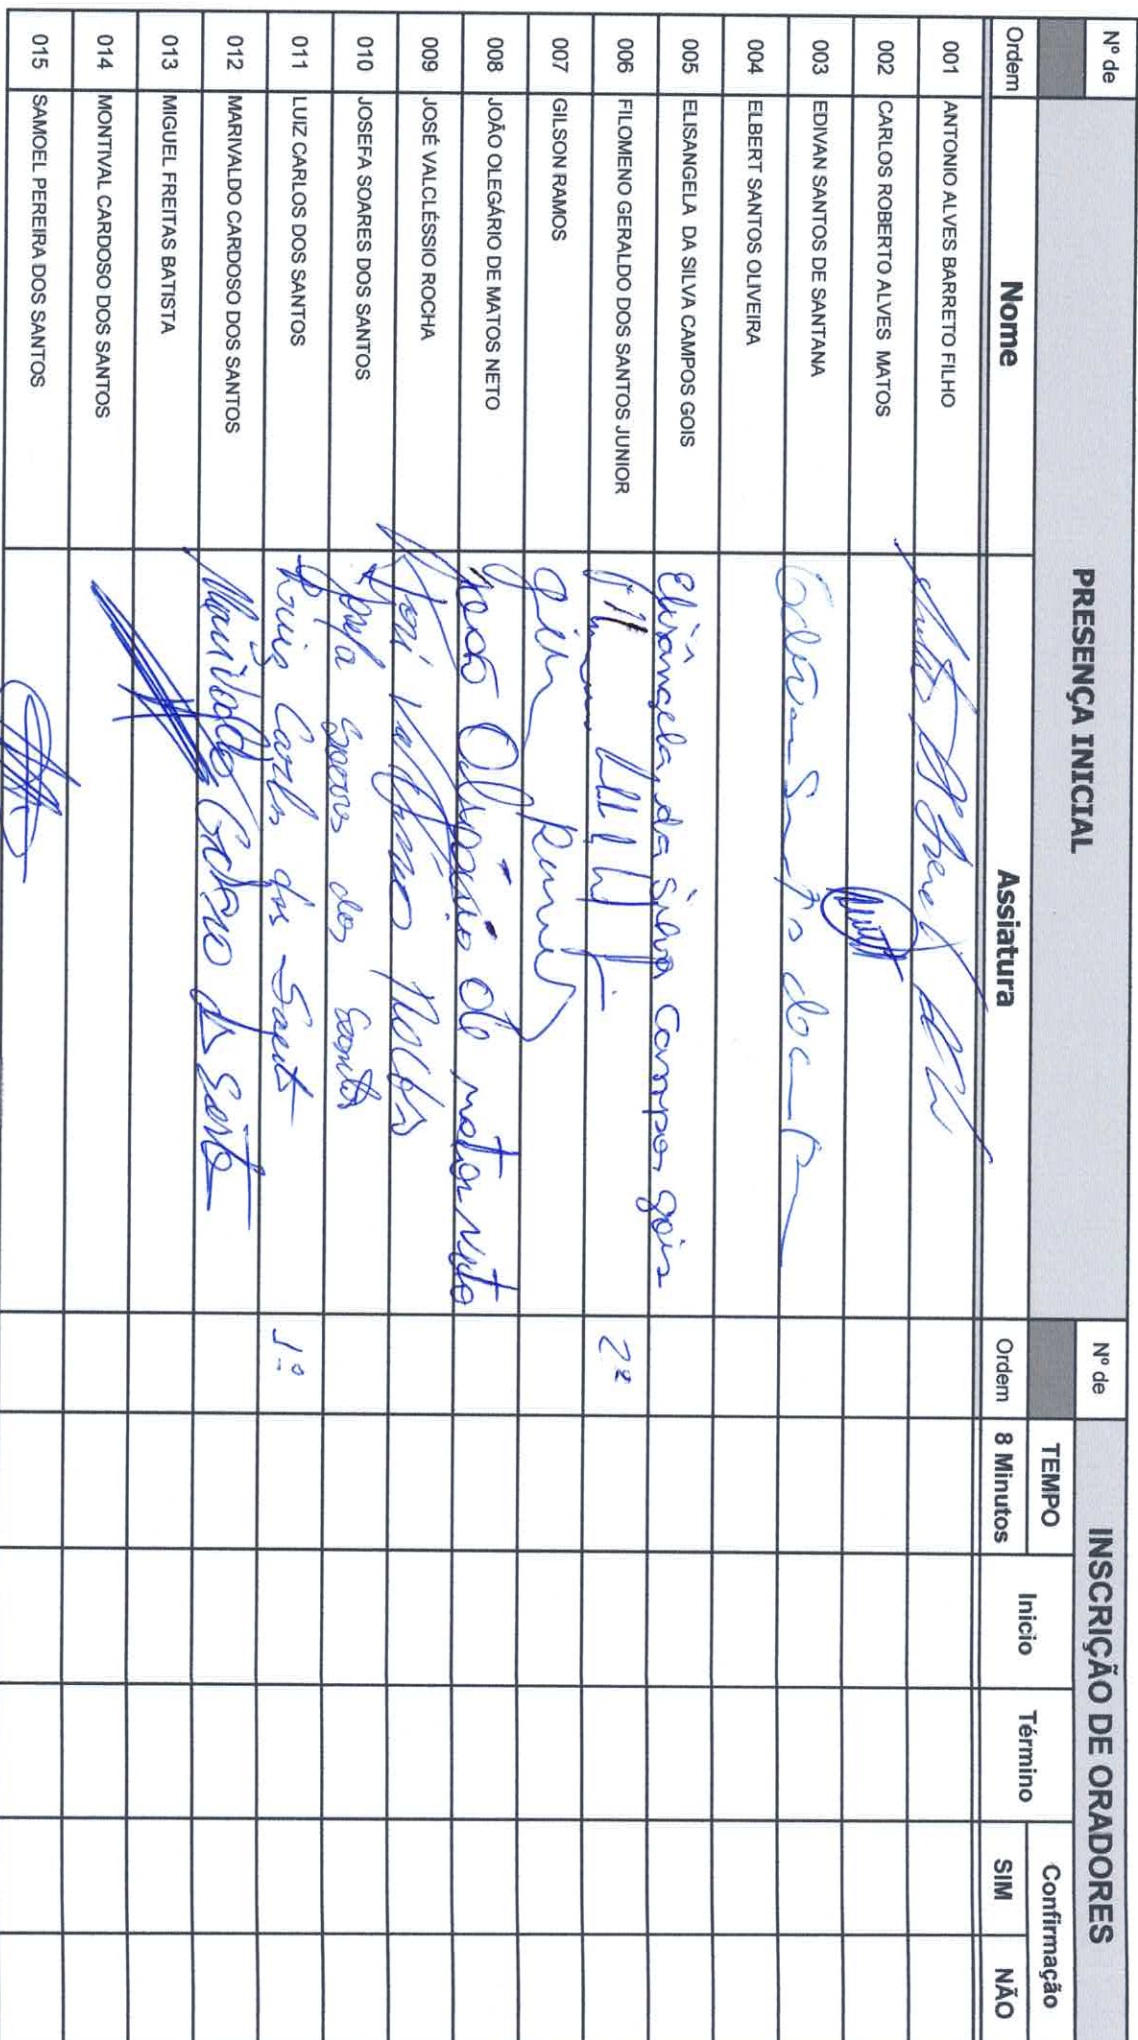 Nº de PRESENÇA INICIAL Nº de INSCRIÇÃO DE ORADORES
TEMPO Inicio Término Confirmação
Ordem Nome Assiatura Ordem 8 Minutos SIM NÃO
001 ANTONIO ALVES BARRETO FILHO
002 CARLOS ROBERTO ALVES MATOS
003 EDIVAN SANTOS DE SANTANA
004 ELBERT SANTOS OLIVEIRA
005 ELISANGELA DA SILVA CAMPOS GOIS Elisângela da Silva Campos gois
006 FILOMENO GERALDO DOS SANTOS JUNIOR 2º
007 GILSON RAMOS
008 JOÃO OLEGÁRIO DE MATOS NETO João Olegário de matos neto
009 JOSÉ VALCLÉSSIO ROCHA
010 JOSEFA SOARES DOS SANTOS Josefa Soares dos Santos
011 LUIZ CARLOS DOS SANTOS Luiz Carlos dos Santos 1º
012 MARIVALDO CARDOSO DOS SANTOS Marivaldo Cardoso dos Santos
013 MIGUEL FREITAS BATISTA
014 MONTIVAL CARDOSO DOS SANTOS
015 SAMOEL PEREIRA DOS SANTOS